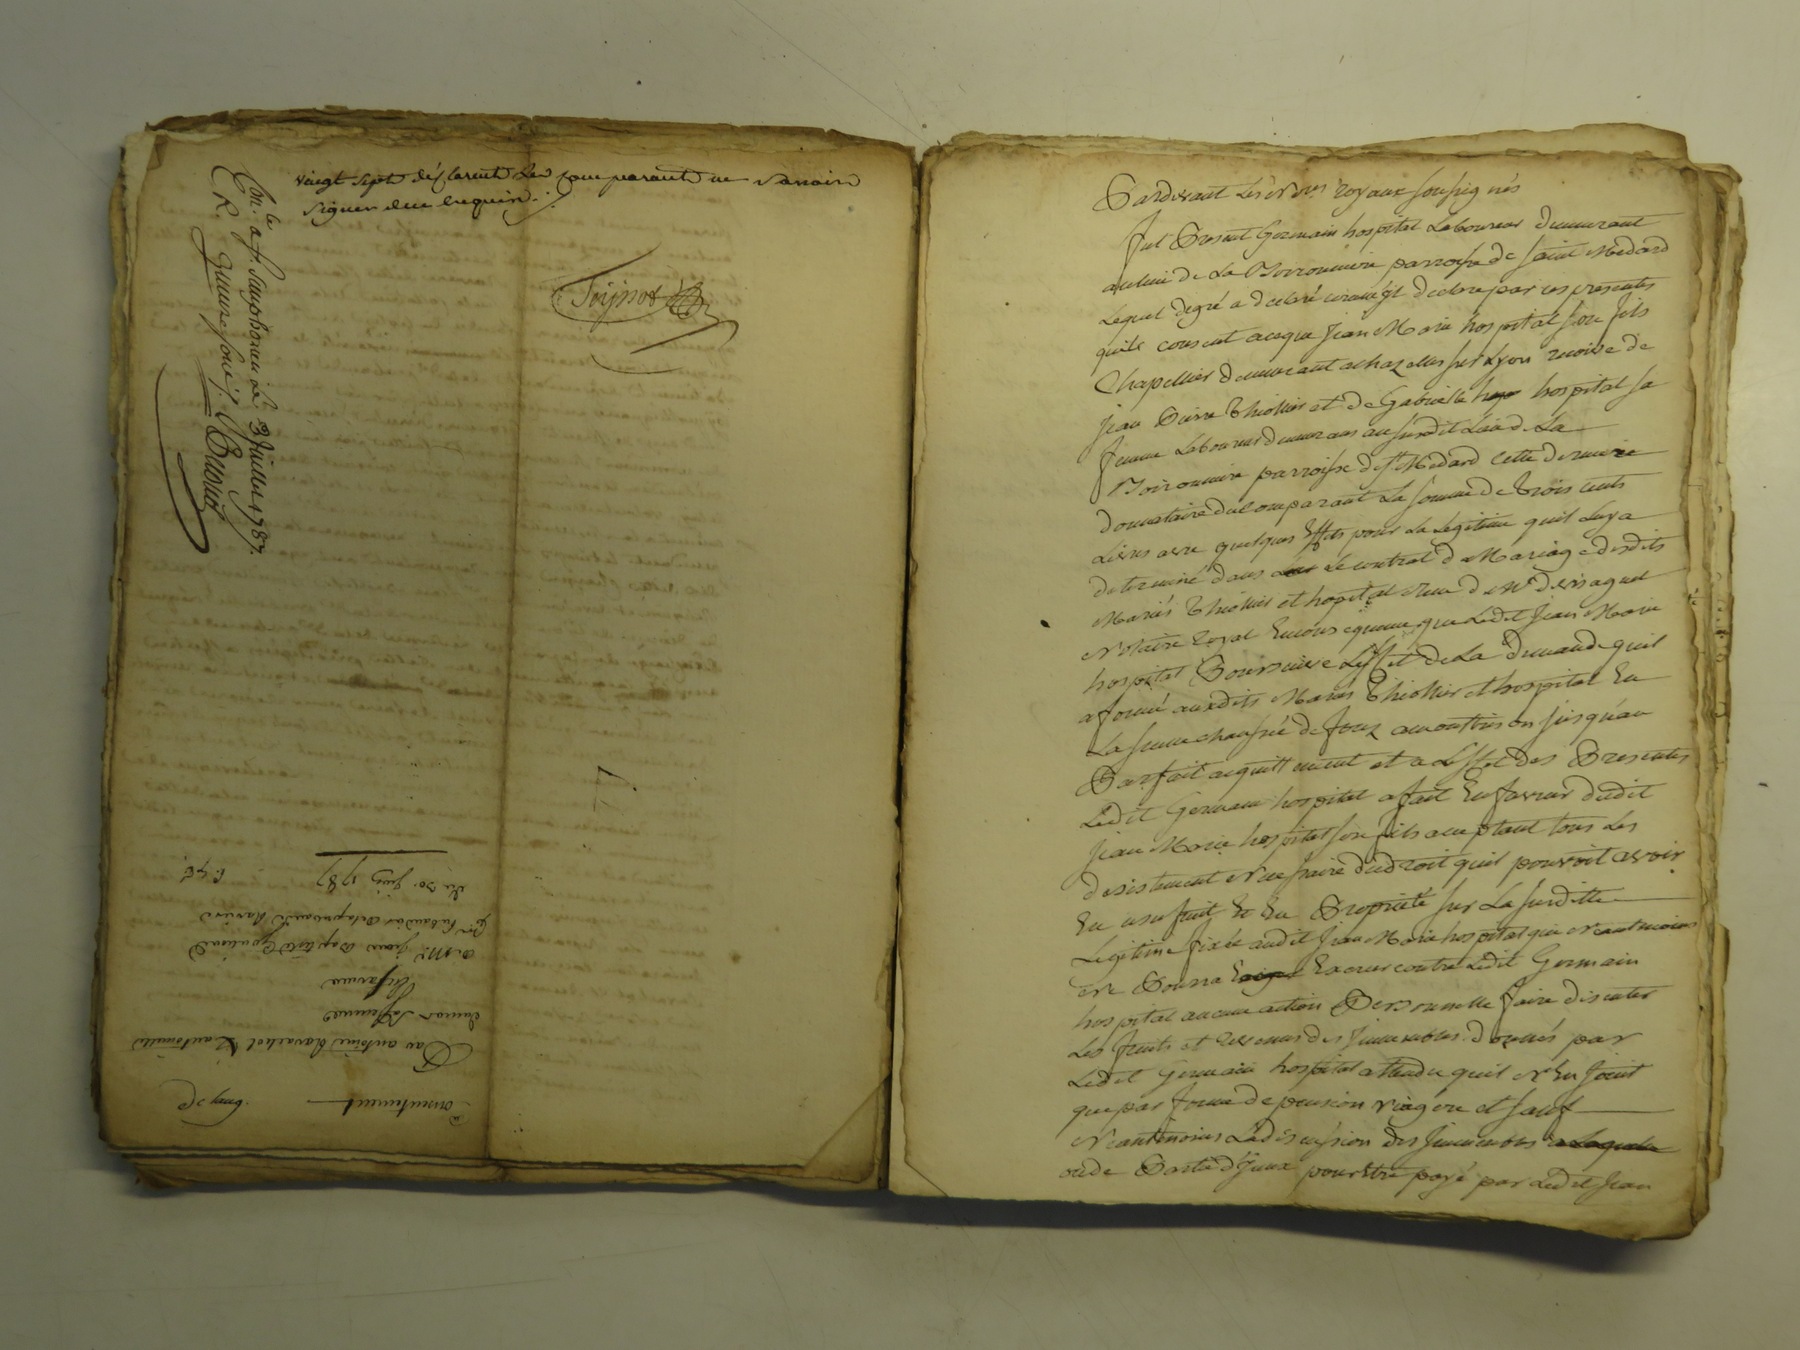 vingt sept déclarent les comparant ne savoir
signer de ce enquis.
Con. le a St. Simphorien le 3 Juillet 1787.
R. quinze sous
Consentement
Par antoine Ravachol & antoinette
a Mr. Jean Baptiste
du 30. juin 1787
Pardevant Les Nres royaux soussignés
fut Present Germain hospital Laboureur demeurant
au lieu de La Poironniere parroisse de saint Medard
Lequel degré a declaré comme il declare par ces presentes
quil consent aceque Jean Marie hospital son fils
Chapellier demeurant a chazelles sur Lyon recoive de
Jean Pierre Thiollier et de Gabrielle hospital sa
femme Laboureur demeurans au susdit Lieu de La
Poironniere parroisse de St Medard cette derniere
donnataire du Comparant La somme de trois cents
Livres avec quelques Effets pour La Legitime quil Luy a
determiné dans Le contrat de Mariage desdits
Mariés Thiollier et hopital reçu de Me
Notaire Royal En consequence que Ledit Jean Marie
hospital Poursuive L'effet de La demande quil
a formé auxdits Mariés Thiollier et hospital En
La senechaussée de forez a montbrison jusqu'au
Parfait acquittement et a L'effet des Presentes
Ledit Germain hospital a fait En faveur dudit
Jean Marie hospital son fils acceptant tous Les
desistement necessaire du droit quil pouvoit avoir
En usufruit & En Proprieté sur La susditte
Legitime fixée audit Jean Marie hospital qui Neantmoins
Ne Pourra Exercer contre Ledit Germain
hospital aucune action Personnelle faire discuter
Les fruits et revenus des Immeubles donnés par
Ledit Germain hospital attendu quil N'En Jouit
que par forme de pension viagere et sauf
Neantmoins La discussion des Immeubles
ou de Partie d'Iceux pour Etre payé par Ledit Jean